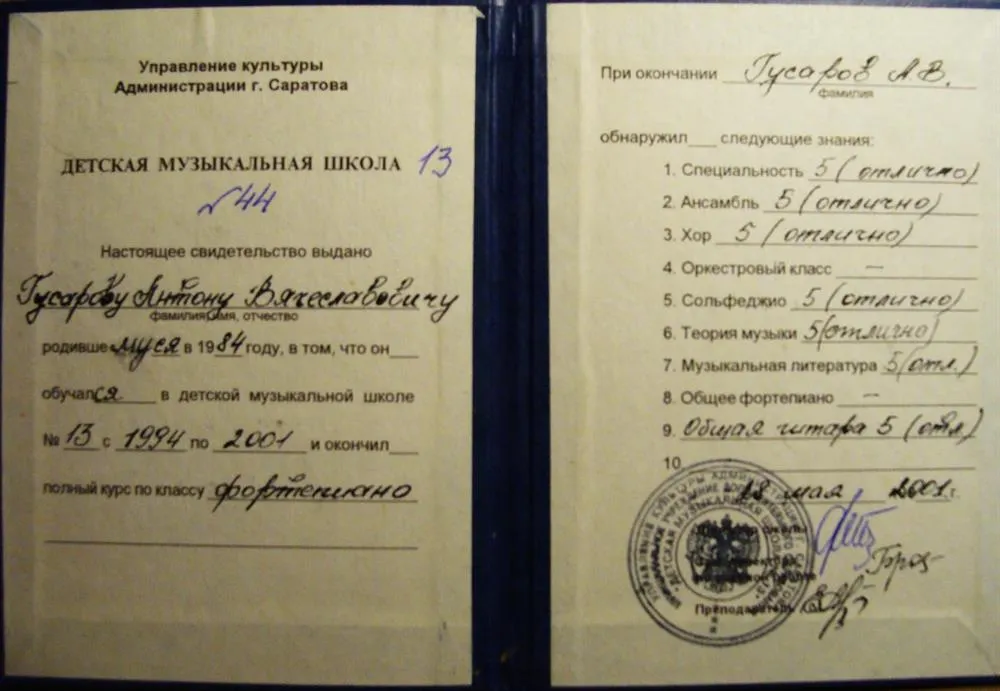 Управление культуры
Администрации г. Саратова
ДЕТСКАЯ МУЗЫКАЛЬНАЯ ШКОЛА 13
№44
Настоящее свидетельство выдано
Гусарову Антону Вячеславовичу
фамилия, имя, отчество
родившемуся в 1984 году, в том, что он
обучался в детской музыкальной школе
№ 13 с 1994 по 2001 и окончил
полный курс по классу фортепиано
При окончании Гусаров А.В.
фамилия
обнаружил следующие знания:
1. Специальность 5 (отлично)
2. Ансамбль 5 (отлично)
3. Хор 5 (отлично)
4. Оркестровый класс —
5. Сольфеджио 5 (отлично)
6. Теория музыки 5 (отлично)
7. Музыкальная литература 5 (отл.)
8. Общее фортепиано —
9. Общая гитара 5 (отл)
10.
18 мая 2001 г.
школы
Преподаватель